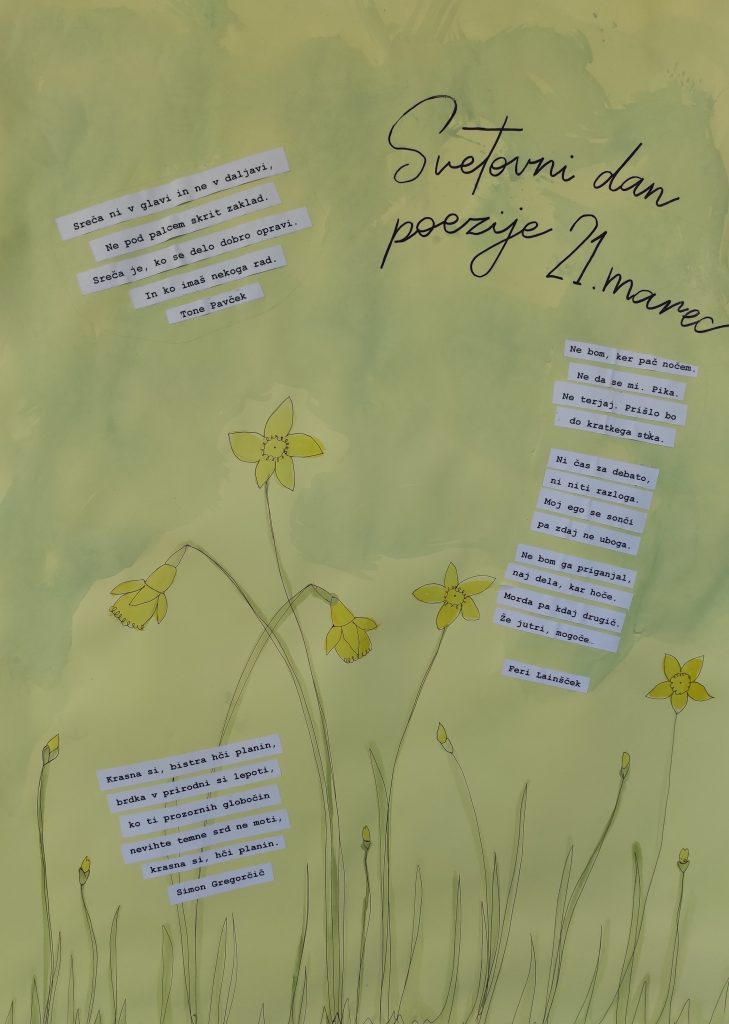 Svetovni dan
poezije 21. marec
Sreča ni v glavi in ne v daljavi,
Ne pod palcem skrit zaklad.
Sreča je, ko se delo dobro opravi.
In ko imaš nekoga rad.
Tone Pavček
Ne bom, ker pač nočem.
Ne da se mi. Pika.
Ne terjaj. Prišlo bo
do kratkega stika.
Ni čas za debato,
ni niti razloga.
Moj ego se sonči
pa zdaj ne uboga.
Ne bom ga priganjal,
naj dela, kar hoče.
Morda pa kdaj drugič.
Že jutri, mogoče…
Feri Lainšček
Krasna si, bistra hči planin,
brdka v prirodni si lepoti,
ko ti prozornih globočin
nevihte temne srd ne moti,
krasna si, hči planin.
Simon Gregorčič